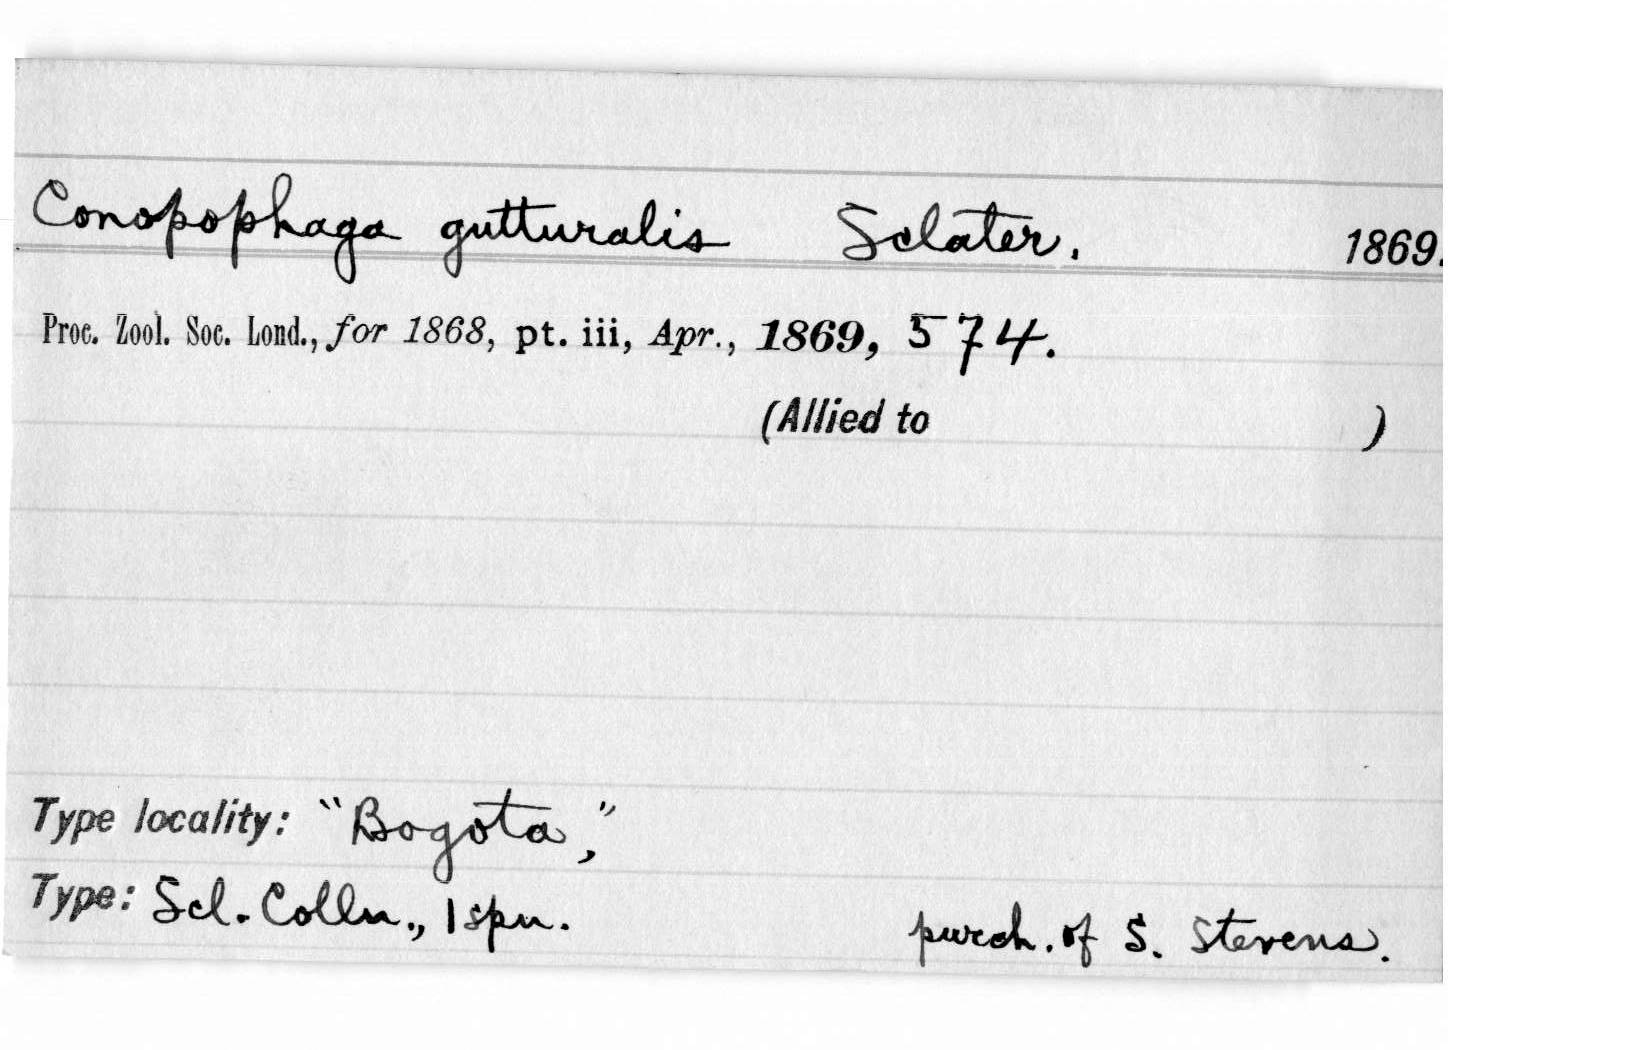 Conopophaga gutturalis Sclater. 1869.
Proc. Zool. Soc. Lond., for 1868, pt. iii, Apr., 1869, 574.
(Allied to )
Type locality: "Bogota,"
Type: Scl. Colln., 1 spn. purch. of S. Stevens.